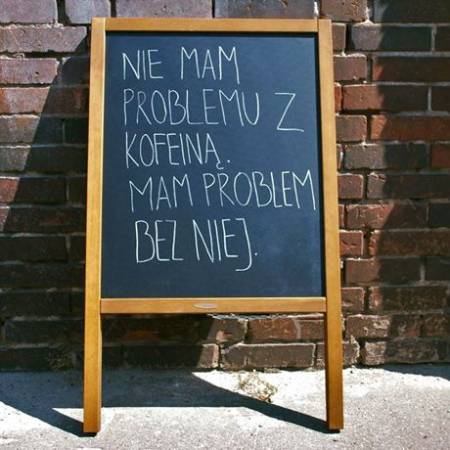 NIE MAM
PROBLEMU Z
KOFEINĄ.
MAM PROBLEM
BEZ NIEJ.